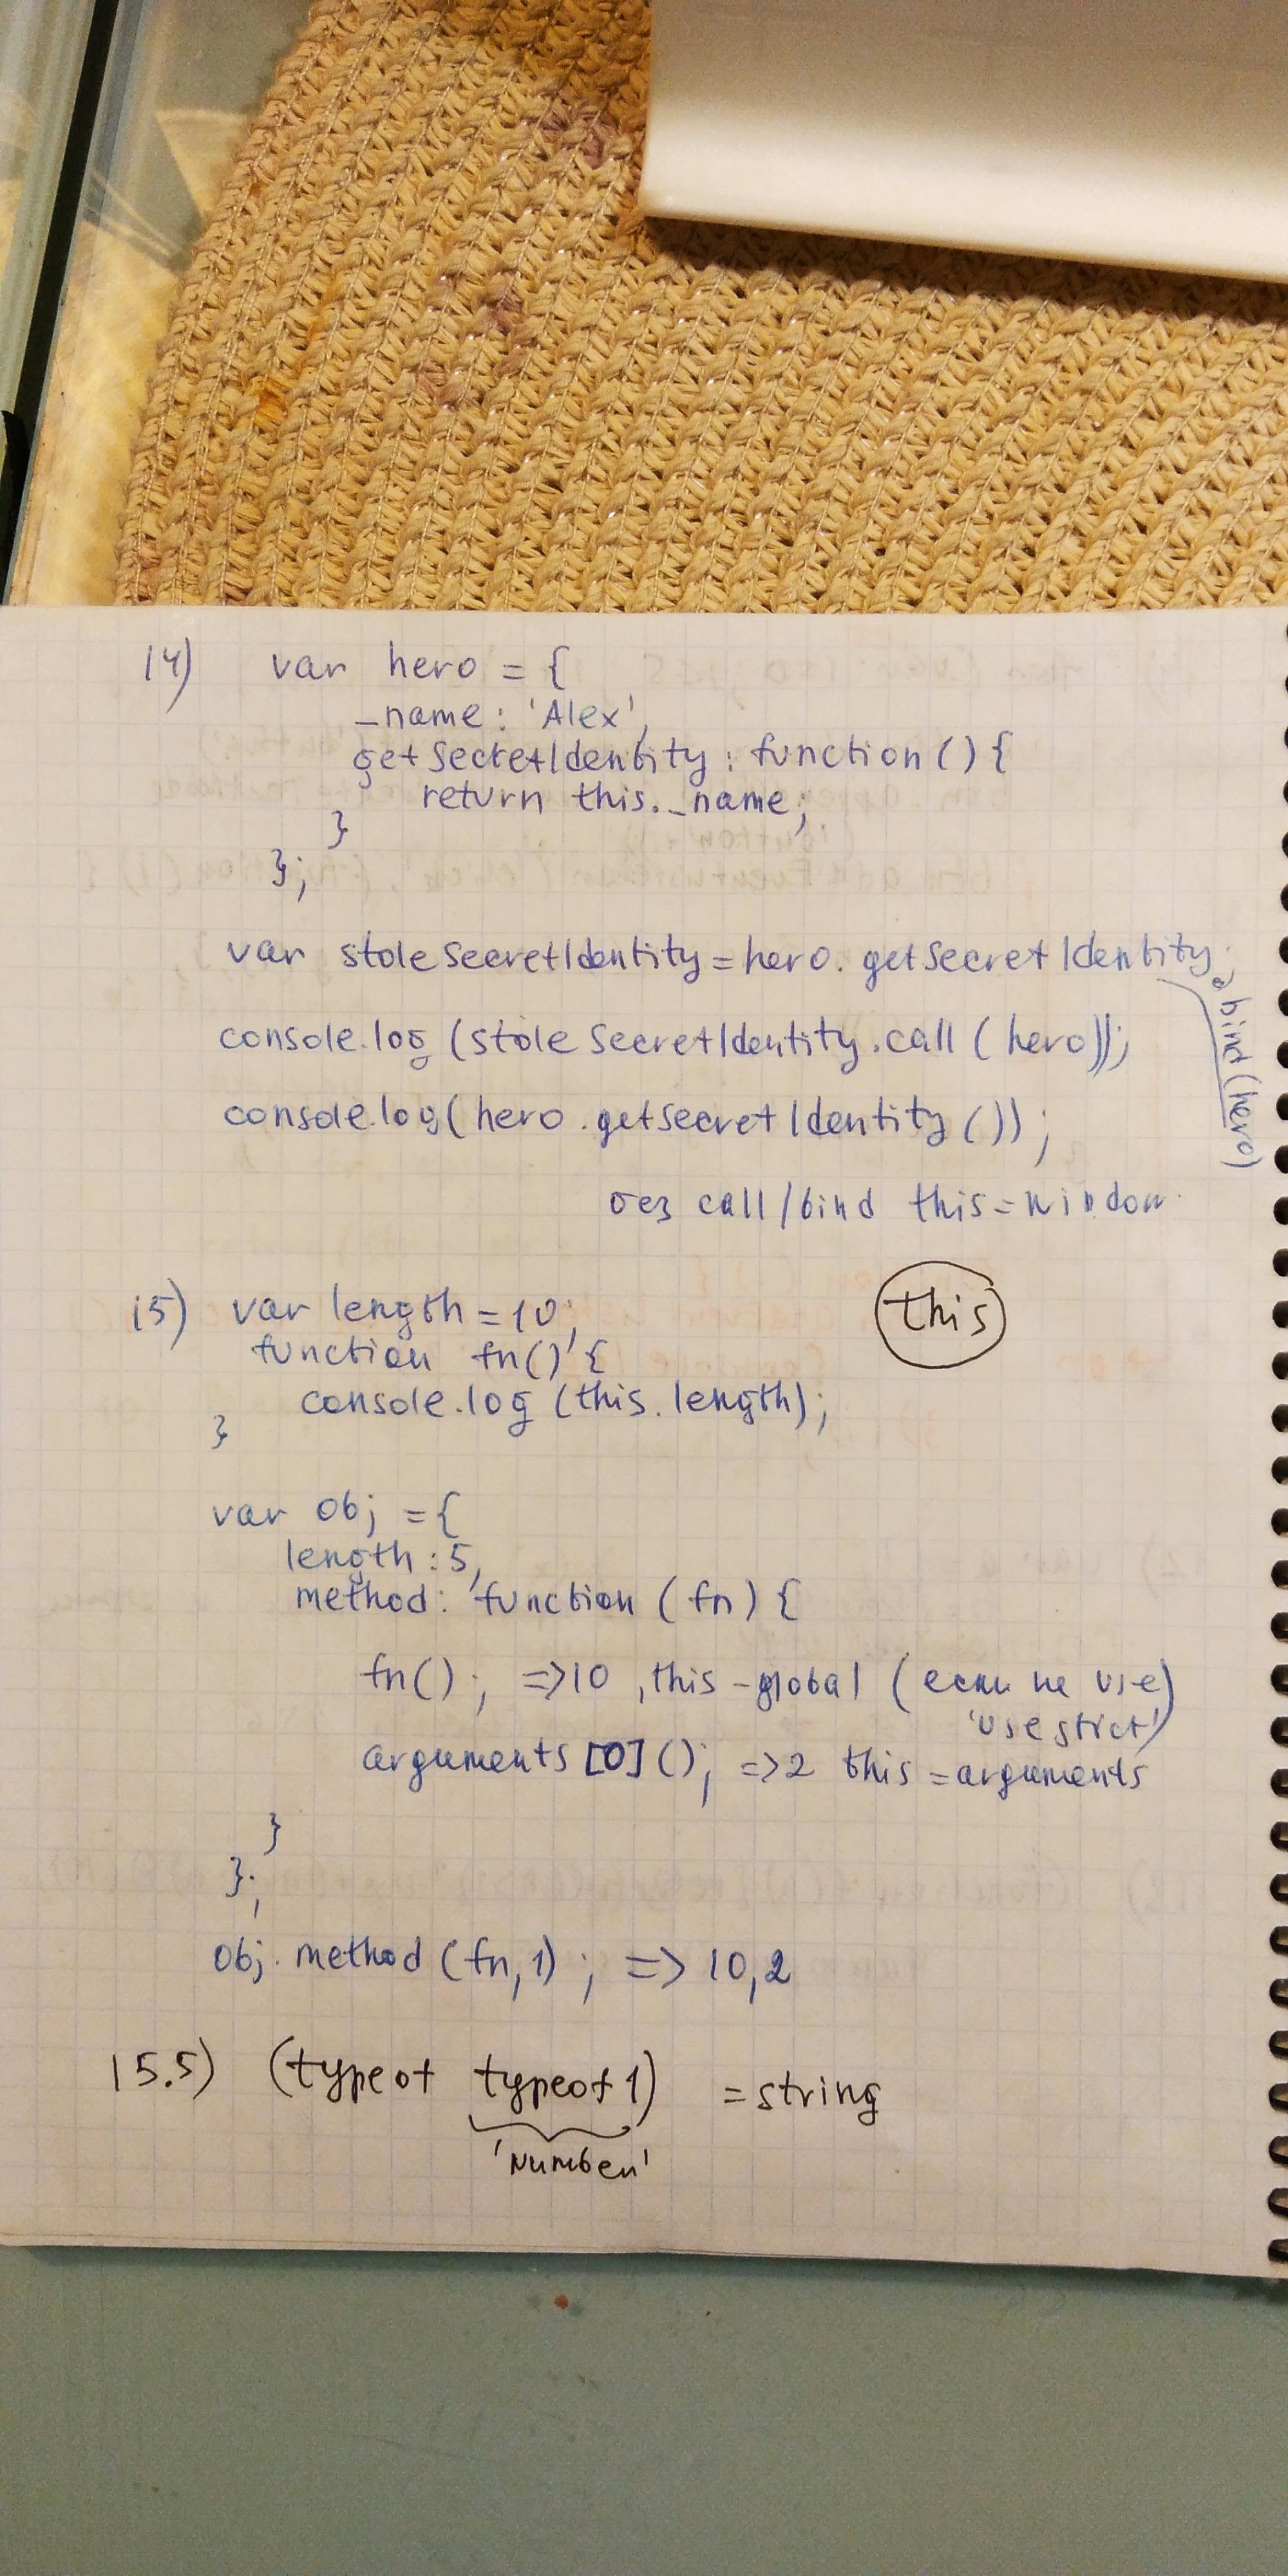 14) var hero = {
_name: 'Alex',
getSecretIdentity: function () {
return this._name;
}
};
var stoleSecretIdentity = hero.getSecretIdentity;
.bind(hero)
console.log (stoleSecretIdentity.call (hero));
console.log( hero.getSecretIdentity ());
без call/bind this = window
15) var length = 10;
this
function fn() {
console.log (this.length);
}
var obj = {
length: 5,
method: function (fn) {
fn(); => 10, this - global (если не use)
'use strict'
arguments [0] (); => 2 this = arguments
}
};
obj.method (fn, 1); => 10, 2
15.5) (typeof typeof 1) = string
'number'